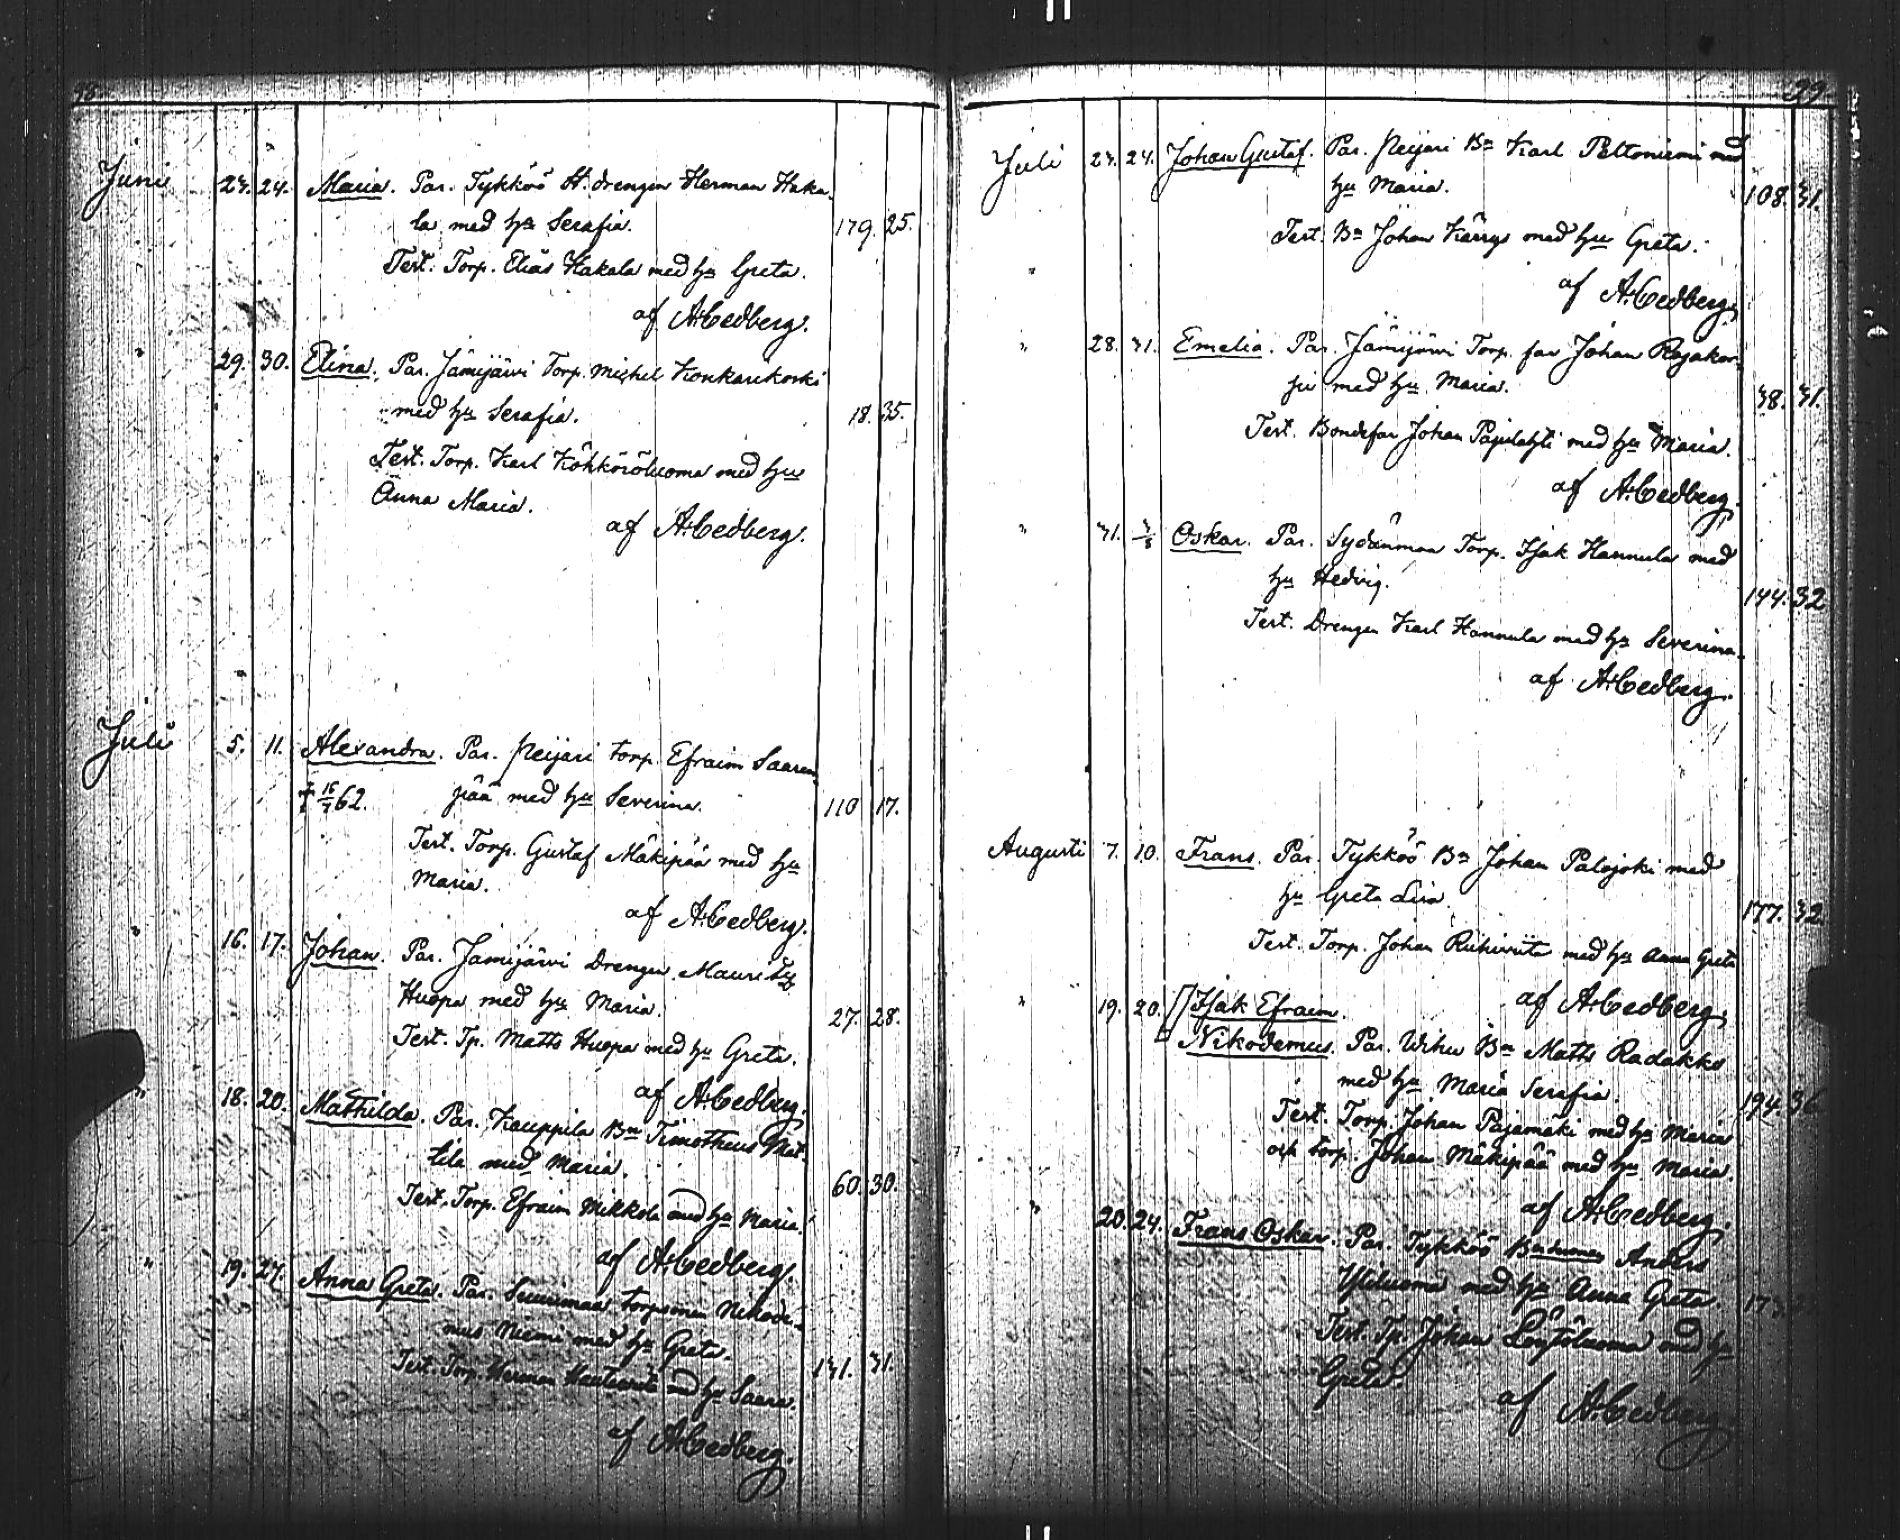 98.
Juni 24. 24. Maria. Par. Tykköö H. drengen Herman Haka-
la med hu Serafia. 179. 25.
Test. Torp. Elias Hakala med hu Greta.
af A. Cedberg.
" 29. 30. Elina. Par. Jämijärvi Torp. Michel Konkarikoski
med hu Serafia. 18. 35.
Test. Torp. Karl Köhköröluoma med hu
Anna Maria.
af A. Cedberg.
Juli 5. 11. Alexandra. Par. Neijari torp. Efraim Saaren-
† 16/7 62. pää med hu Severina. 110 17.
Test. Torp. Gustaf Mäkipää med hu
Maria.
af A. Cedberg.
" 16. 17. Johan. Par. Jämijärvi Drengen Maurits
Huopa med hu Maria. 27. 28.
Test. Tp. Matts Huopa med hu Greta.
af A. Cedberg.
" 18. 20. Mathilda. Par. Kauppila Bn Timotheus Mat-
tila med Maria. 60. 30.
Test. Torp. Efraim Mikkola med hu Maria.
af A. Cedberg.
" 19. 27. Anna Greta. Par. Suurimaa torpsonen Nikode-
mus Niemi med hu Greta. 131. 31.
Test. Torp. Herman med hu Saara.
af A. Cedberg.
99.
Juli 23. 24. Johan Gustaf. Par. Neijari Bn Karl Peltoniemi med
hu Maria. 108. 31.
Test. Bn Johan Kärrys med hu Greta.
af A. Cedberg.
" 28. 31. Emelia. Par. Jämijärvi Torp. far Johan Rajakor-
pi med hu Maria. 38. 31.
Test. Bondefar Johan Pajulahti med hu Maria.
af A. Cedberg.
" 31. 3/8 Oskar. Par. Sydänmaa Torp. Isak Hannula med
hu Hedvig. 144. 32
Test. Drengen Karl Hannula med hu Severina.
af A. Cedberg.
Augusti 7. 10. Frans. Par. Tykköö Bn Johan Palojoki med
hu Greta Lisa. 177. 32.
Test. Torp. Johan Riihiviita med hu Anna Greta
af A. Cedberg.
" 19. 20. Isak Efraim.
Nikodemus. Par. Wihu Bn Matts Radakko
med hu Maria Serafia. 194. 36
Test. Torp. Johan Pajamäki med hu Maria
och torp. Johan Mäkipää med hu Maria.
af A. Cedberg.
" 20. 24. Frans Oskar. Par. Tykköö Anders
Yliluoma med hu Anna Greta.
Test. Tp. Johan Löytöluoma med hu
Greta.
af A. Cedberg.